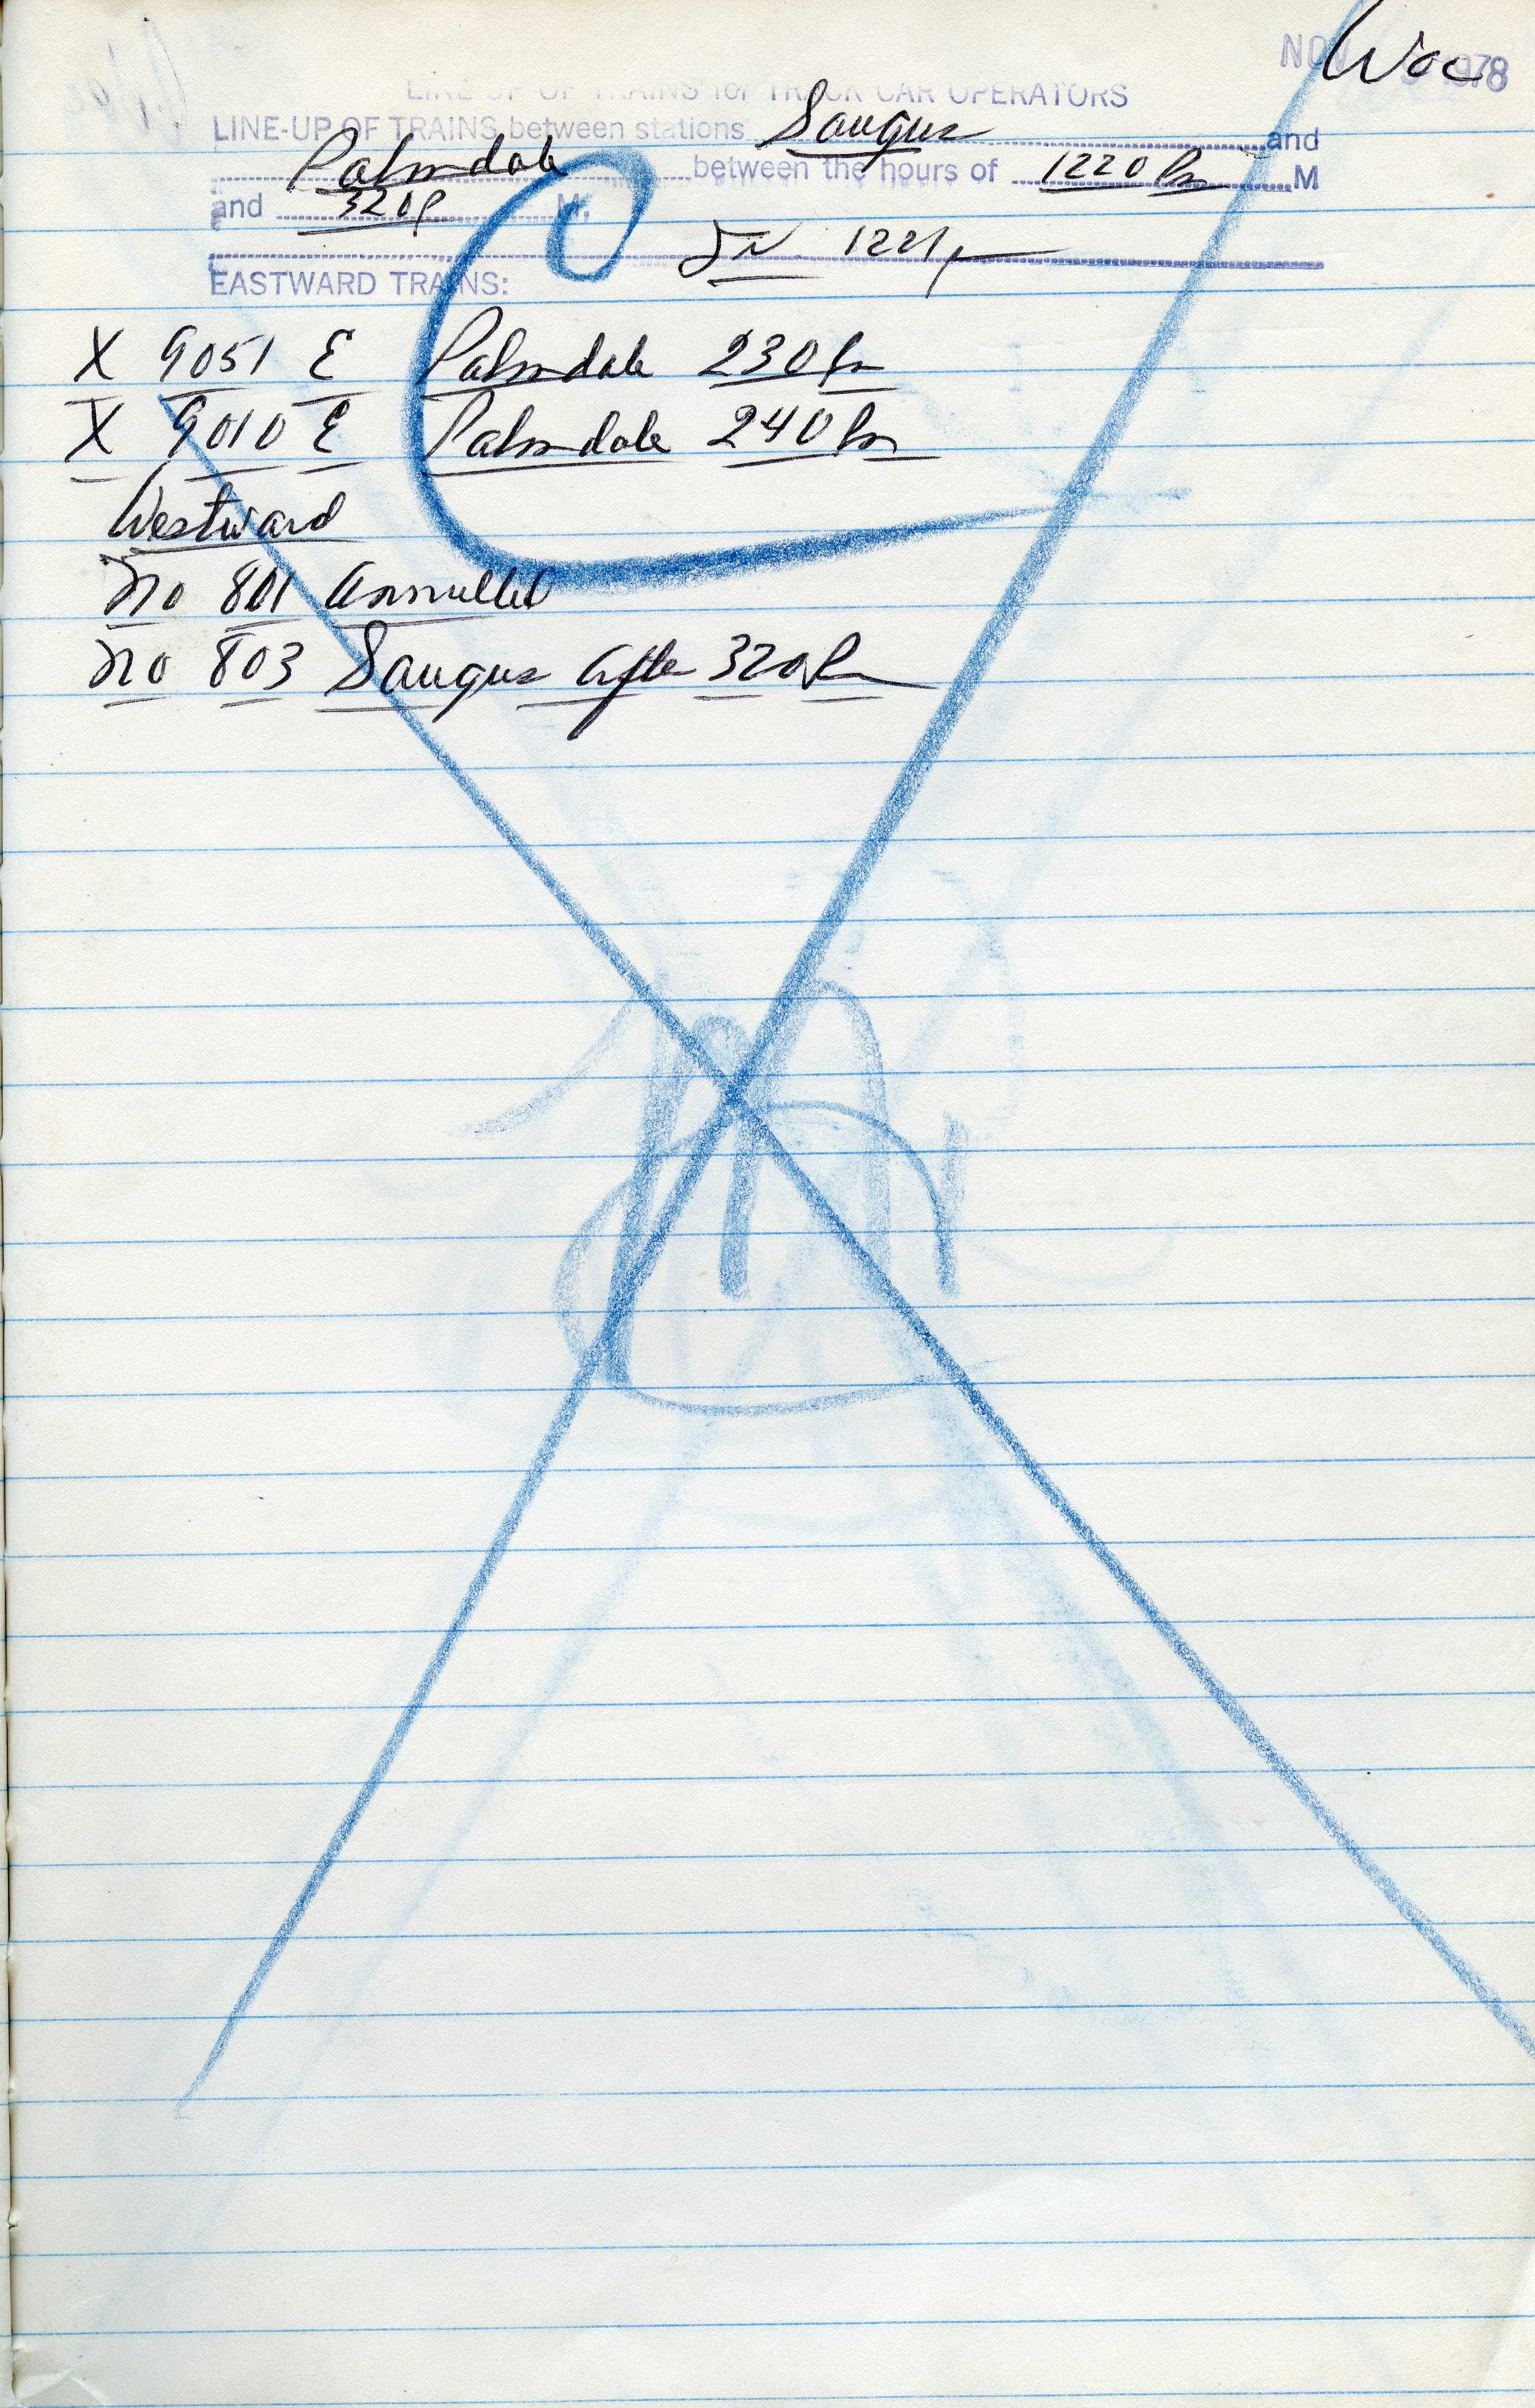 NOV 1978
LINE-UP OF TRAINS for TRACK CAR OPERATORS
LINE-UP OF TRAINS between stations Saugus and
Palmdale between the hours of 1220 Pm M
and 320P M.
1221p
EASTWARD TRAINS:
X 9051 E Palmdale 230Pm
X 9010 E Palmdale 240Pm
Westward
No 801 Annulled
No 803 Saugus After 320Pm